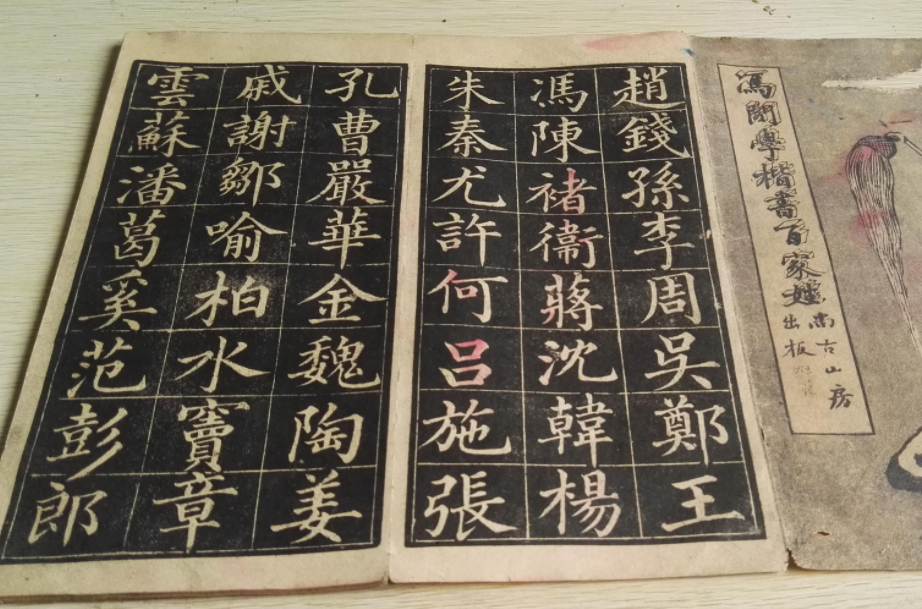 馮學楷書百家姓
尚古山房
出板
趙錢孫李周吳鄭王
馮陳褚衛蔣沈韓楊
朱秦尤許何吕施張
孔曹嚴華金魏陶姜
戚謝鄒喻柏水竇章
雲蘇潘葛奚范彭郎